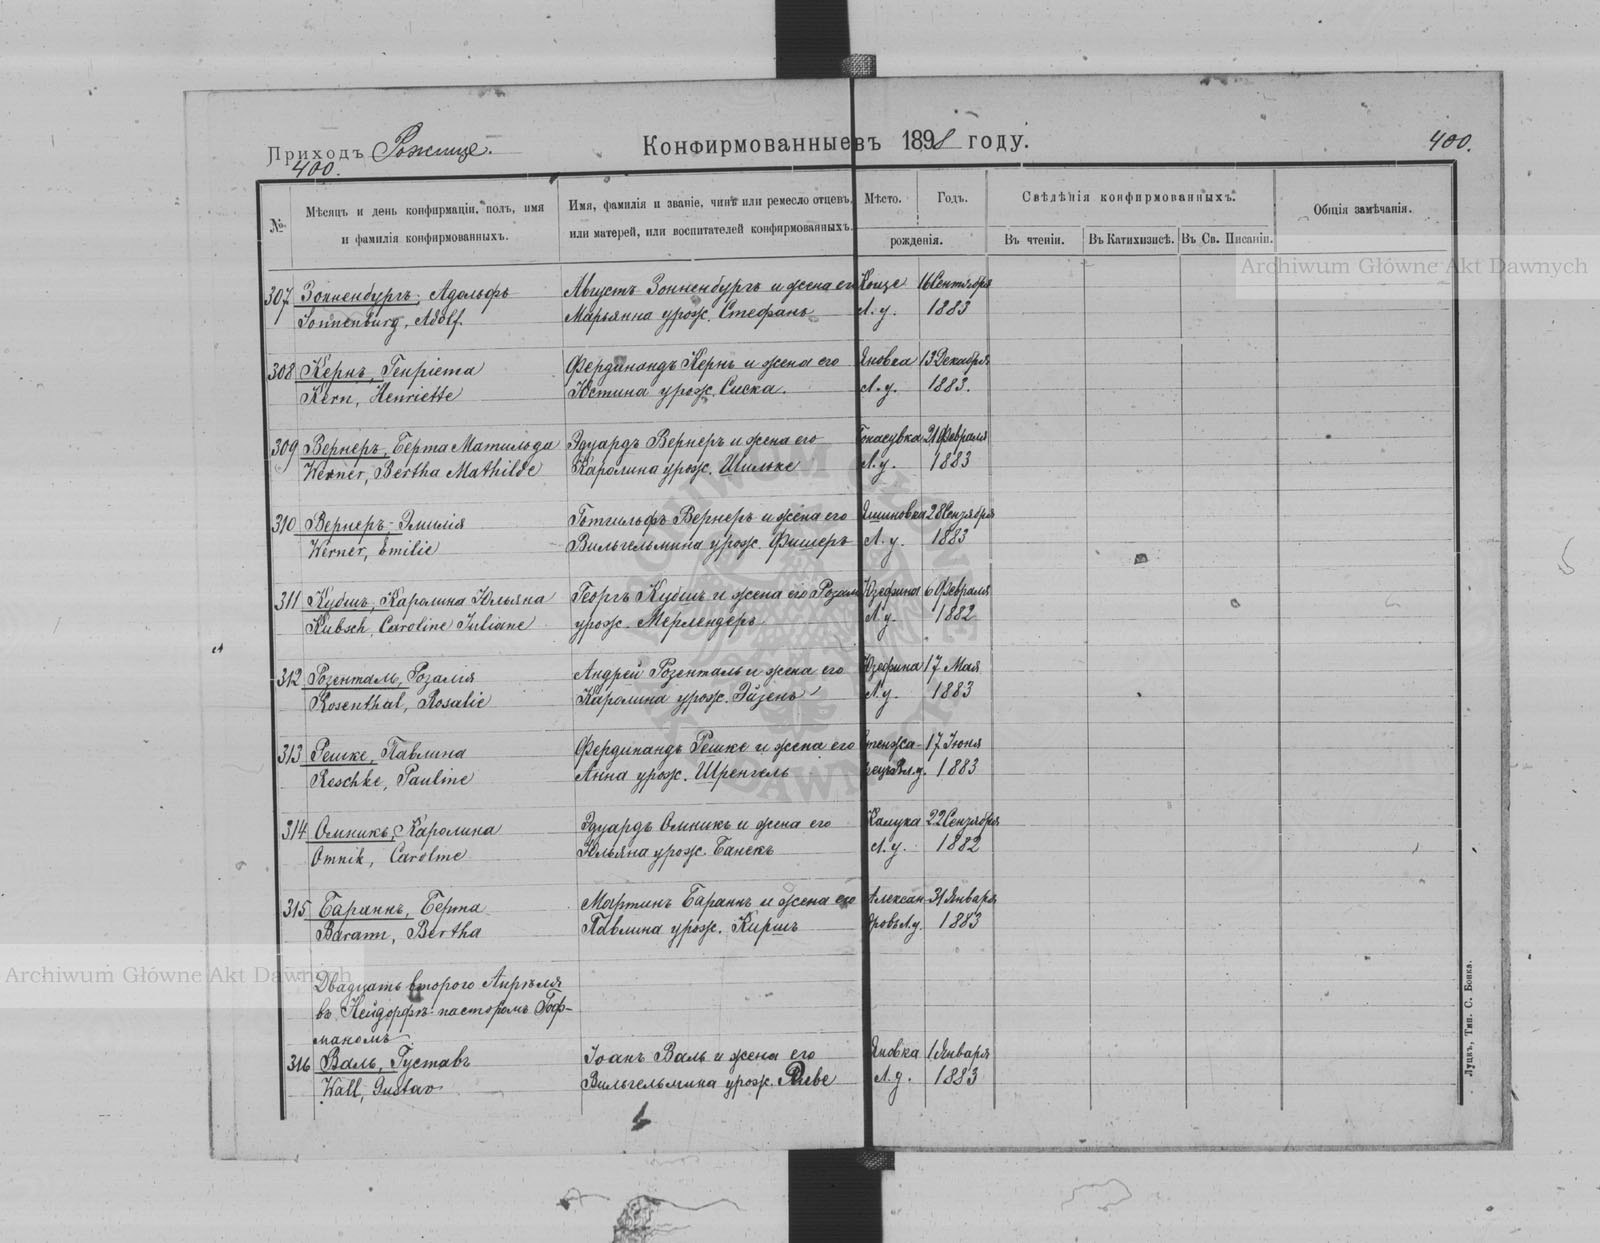 Приходъ Рожище.
Конфирмованные въ 1898 году.
400.
400.
№
Мѣсяцъ и день конфирмаціи, полъ, имя
и фамилія конфирмованныхъ.
Имя, фамилія и званіе, чинъ или ремесло отцевъ,
или матерей, или воспитателей конфирмованныхъ.
Мѣсто.
Годъ.
рожденія.
Свѣдѣнія конфирмованныхъ.
Въ чтеніи.
Въ Катихизисѣ.
Въ Св. Писаніи.
Общія замѣчанія.
Archiwum Główne Akt Dawnych
307 Зонненбургъ, Адольфъ Августъ Зонненбургъ и жена его 16 Сентября
Sonnenburg, Adolf Марьянна урож. Стефанъ Л. у. 1883
308 Кернъ, Генріета Фердинандъ Кернъ и жена его Яновка 13 Декабря
Kern, Henriette Юстина урож. Сиска. Л. у. 1883.
309 Вернеръ, Берта Матильда Эдуардъ Вернеръ и жена его 21 Февраля
Werner, Bertha Mathilde Каролина урож. Шильке Л. у. 1883
310 Вернеръ - Эмилія Готгильфъ Вернеръ и жена его Яшиновка 28 Сензября
Werner, Emilie Вильгельмина урож. Фишеръ Л. у. 1883
311 Кубшъ, Каролина Юльяна Георгъ Кубшъ и жена его Розал Юзефина 6 Февраля
Kubsch, Caroline Juliane урож. Мерлендеръ Л. у. 1882
312 Розенталь, Розалія Андрей Розенталь и жена его Юзефина 17 Мая
Rosenthal, Rosalie Каролина урож. Эйзенъ Л. у. 1883
313 Решке, Павлина Фердинандъ Решке и жена его 17 Іюня
Reschke, Pauline Анна урож. Шренгель 1883
314 Омникъ, Каролина Эдуардъ Омникъ и жена его Калука 22 Сензября
Omnik, Caroline Юльяна урож. Банекъ Л. у. 1882
315 Бараннъ, Берта Мартинъ Бараннъ и жена его Алексан 31 Января
Barann, Bertha Павлина урож. Киршъ дровъ Л. у. 1883
Archiwum Główne Akt Dawnych
Двадцать второго Апрѣля
въ Нейдорфѣ пасторомъ Гоф-
маномъ
316 Валь, Густавъ Іоанъ Валь и жена его Яновка 1 Января
Wall, Gustav Вильгельмина урож. Л. у. 1883
Луцкъ, Тип. С. Бонка.